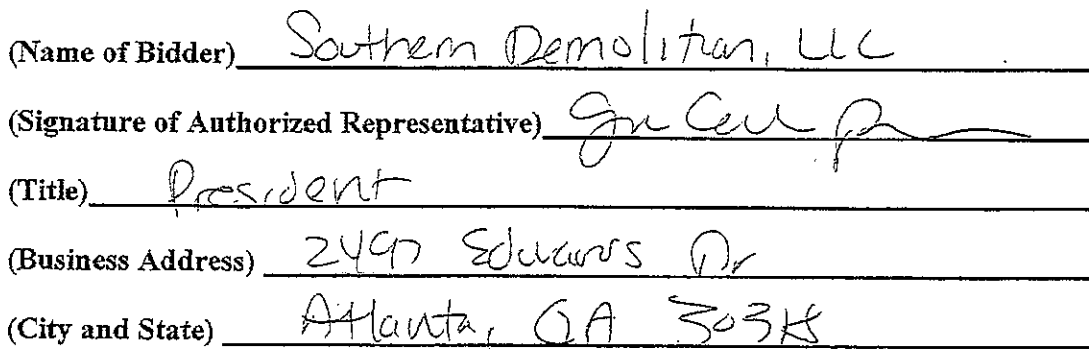 (Name of Bidder) Southern Demolition, LLC
(Signature of Authorized Representative)
(Title) President
(Business Address) 2497 Edwards Dr
(City and State) Atlanta, GA 30318